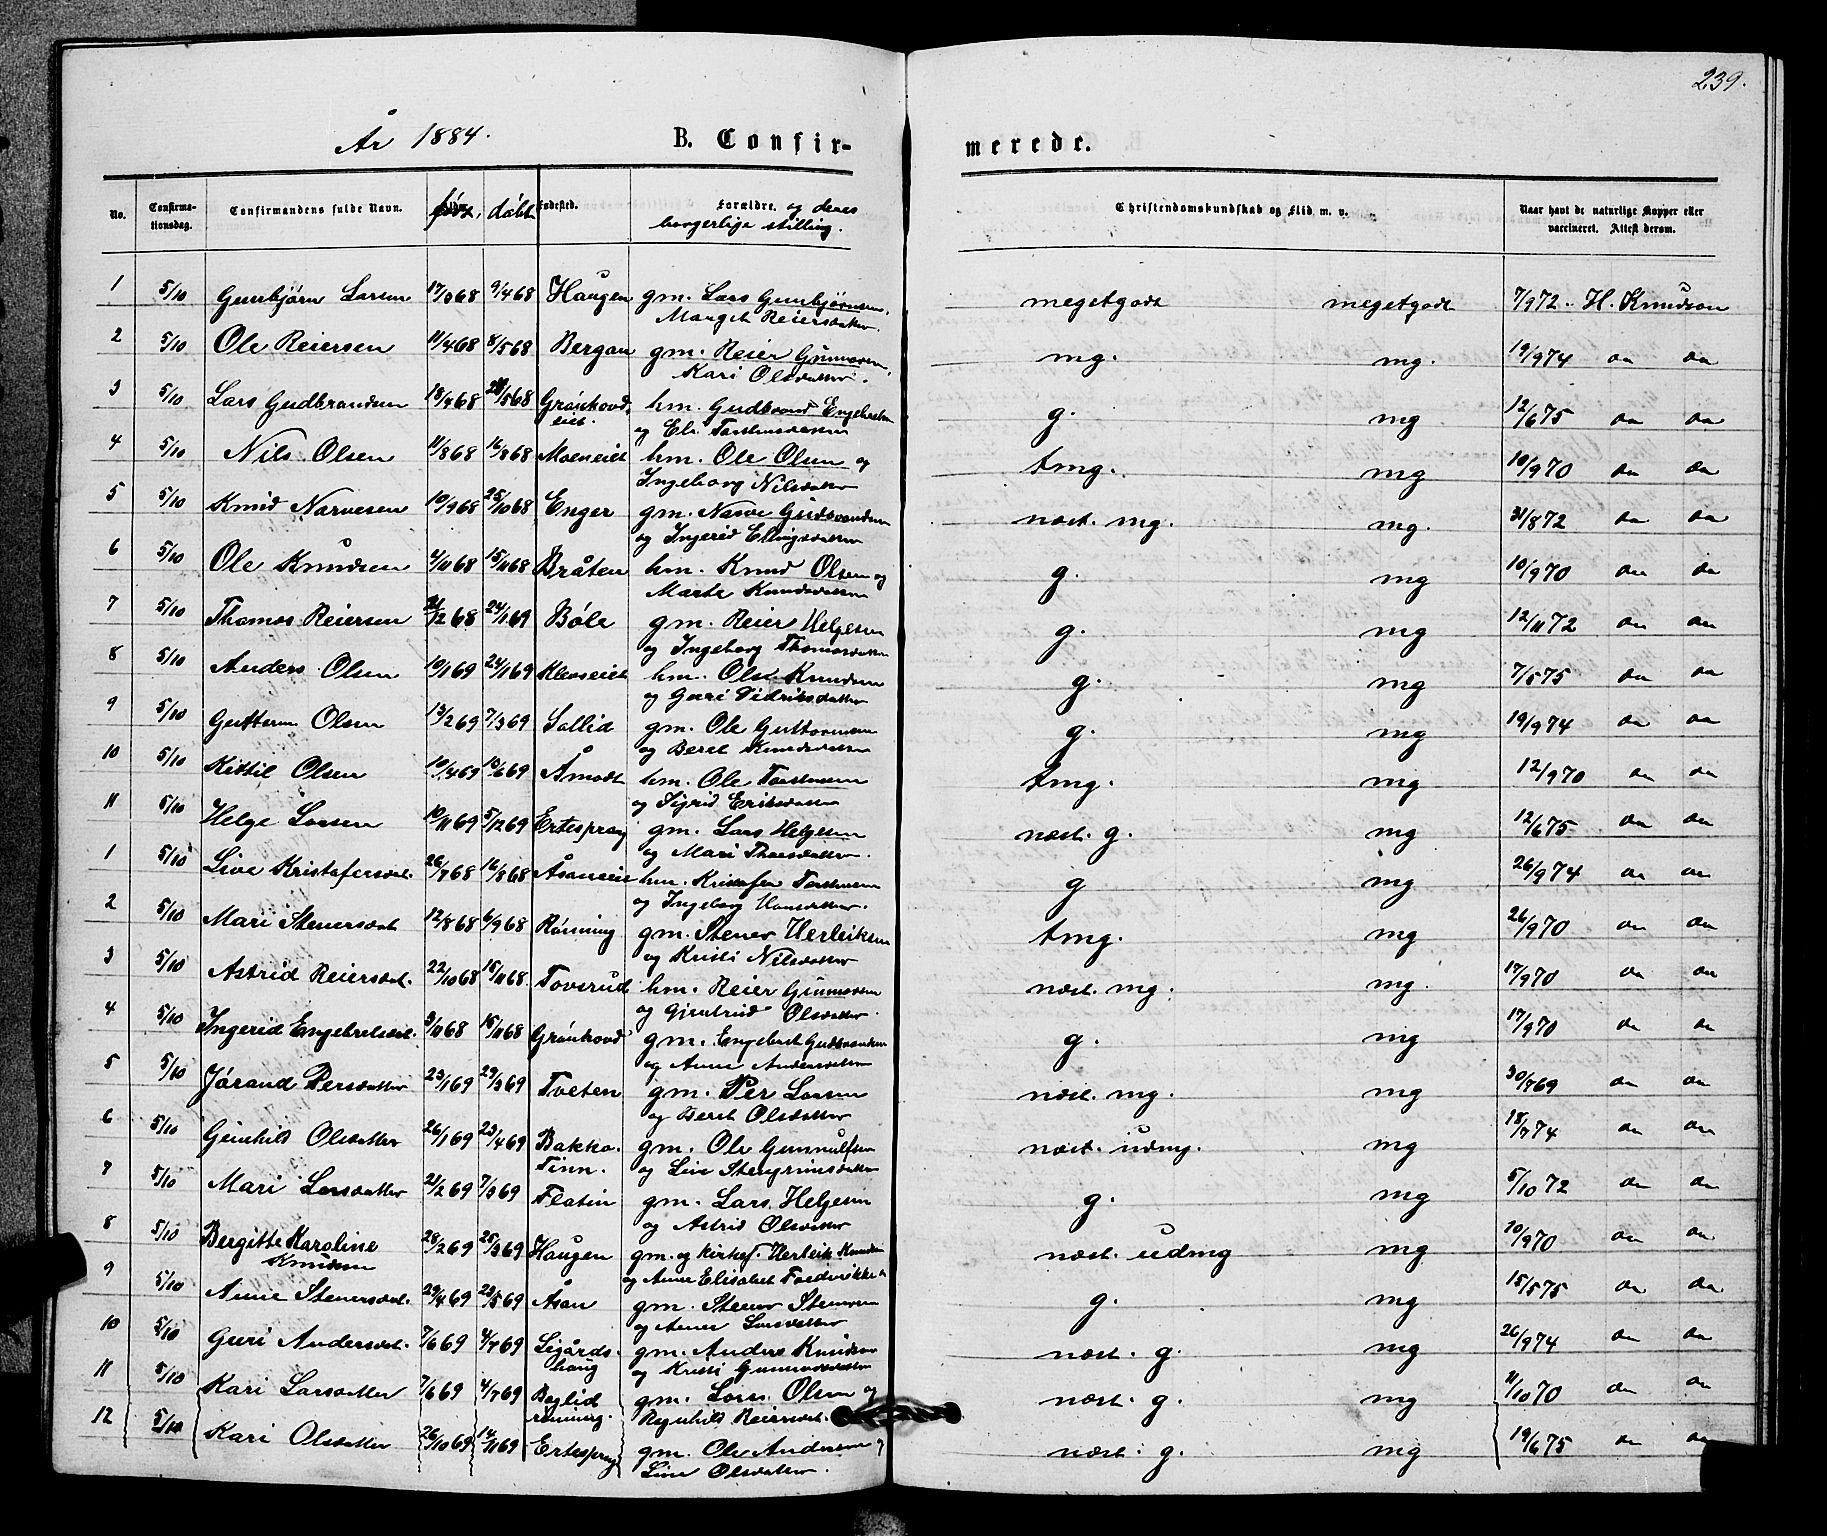 239.
År 1884. B. Confir- merede.
No. Confirma-tionsdag. Confirmandens fulde Navn. født, døbt Fødested. Forældre. og deres borgerlige stilling. Christendomskundskab og Flid m. v. Naar havt de naturlige Kopper eller vaccineret. Attest derom.
1 5/10 Gunbjørn Larsen 17/3 68 9/4 68 Haugen gm. Lars Gunbjørnsen, meget godt meget godt 7/9 72 H. Knudson
Margit Reiersdatter.
2 5/10 Ole Reiersen 11/4 68 8/5 68 Bergan gm. Reier Gunnarsen, mg. mg. 19/9 74 do do
Kari Olsdatter.
3 5/10 Lars Gudbrandsen 18/4 68 /5 68 Grønhovd, hm. Gudbrand Engebretsen g. mg 12/6 75 do do
eiet. og Eli Torstensdatter
4 5/10 Nils Olsen 11/8 68 16/8 68 Moeneiet hm. Ole Olsen og tmg. mg 10/9 70 do do
Ingeborg Nilsdatter
5 5/10 Knud Narvesen 10/9 68 25/10 68 Enger gm. Narve Gudbrandsen næst. mg. mg. 31/8 72 do do
og Ingerid Ellingsdatter
6 5/10 Ole Knudsen 4/11 68 15/11 68 Bråten hm. Knud Olsen og g. mg 10/9 70 do do
Marte Knudsdatter
7 5/10 Thomas Reiersen 21/12 68 24/1 69 Bøle gm. Reier Helgesen g. mg 12/11 72 do do
og Ingeborg Thomasdatter
8 5/10 Anders Olsen 10/1 69 24/1 69 Kleveeiet hm. Ole Knudsen g. mg 7/5 75 do do
og Guri Didriksdatter
9 5/10 Guttorm Olsen 13/2 69 7/3 69 Sollid gm. Ole Guttormsen g. mg 19/9 74 do do
og Beret Knudsdatter
10 5/10 Kittil Olsen 10/4 69 13/6 69 Åmodt hm. Ole Torstensen tmg. mg 12/9 70 do do
og Sigrid Eriksdatter
11 5/10 Helge Larsen 10/11 69 5/12 69 Ertesprang gm. Lars Helgesen næst. g. mg 12/6 75 do do
og Mari Thorsdatter.
1 5/10 Live Kristofersdat. 26/7 68 16/8 68 Åsaneie hm. Kristofer Torstensen g mg 26/9 74 do do
og Ingeborg Hansdatter.
2 5/10 Mari Stenersdat 12/8 68 6/9 68 Rønning gm. Stener Herleiksen tmg. mg 26/9 70 do do
og Kristi Nilsdatter
3 5/10 Astrid Reiersdat. 22/10 68 15/11 68 Toverud hm. Reier Gunnarsen næst. mg. mg. 17/9 70 do do
og Gjertrud Olsdatter.
4 5/10 Ingerid Engebretsdat. 3/11 68 15/11 68 Grønhovd gm. Engebret Gudbrandsen g. mg 17/9 70 do do
og Anne Andersdatter
5 5/10 Jørand Persdatter 23/1 69 29/3 69 Tveten gm. Per Larsen næst. mg. mg 30/7 69 do do
og Beret Olsdatter
6 5/10 Gunhild Olsdatter 26/1 69 23/4 69 Bakko. gm. Ole Gunnulfsen næst. udmg. mg 18/7 74 do do
Tinn. og Live Stengrimsdatter
7 5/10 Mari Larsdatter 21/2 69 7/3 69 Flatin gm. Lars Helgesen g. mg 5/10 72 do do
og Astrid Olsdatter
8 5/10 Bergitte Karoline 28/2 69 25/3 69 Haugen gm. og kirkes. Herleik Knudsen næst. udmg mg 10/9 70 do do
Knudsen og Anne Elisabet Frederikke
9 5/10 Anne Stenersdat. 29/4 69 23/5 69 Åsan gm. Stener Stenersen g. mg 15/5 75 do do
og Anne Larsdatter
10 5/10 Guri Andersdat. 7/6 69 4/7 69 Sigårds- gm. Anders Knudsen næst. g. mg 26/9 74 do do
haug og Kristi Gunnarsdatter
11 5/10 Kari Larsdatter 7/6 69 4/7 69 Beglid gm. Lars Olsen og næst. g. mg 21/10 70 do do
rønning. Ragnhild Reiersdat.
12 5/10 Kari Olsdatter 26/10 69 14/11 69 Ertesprang gm. Ole Andersen og næst. g. mg 19/6 75 do do
Live Olsdatter.